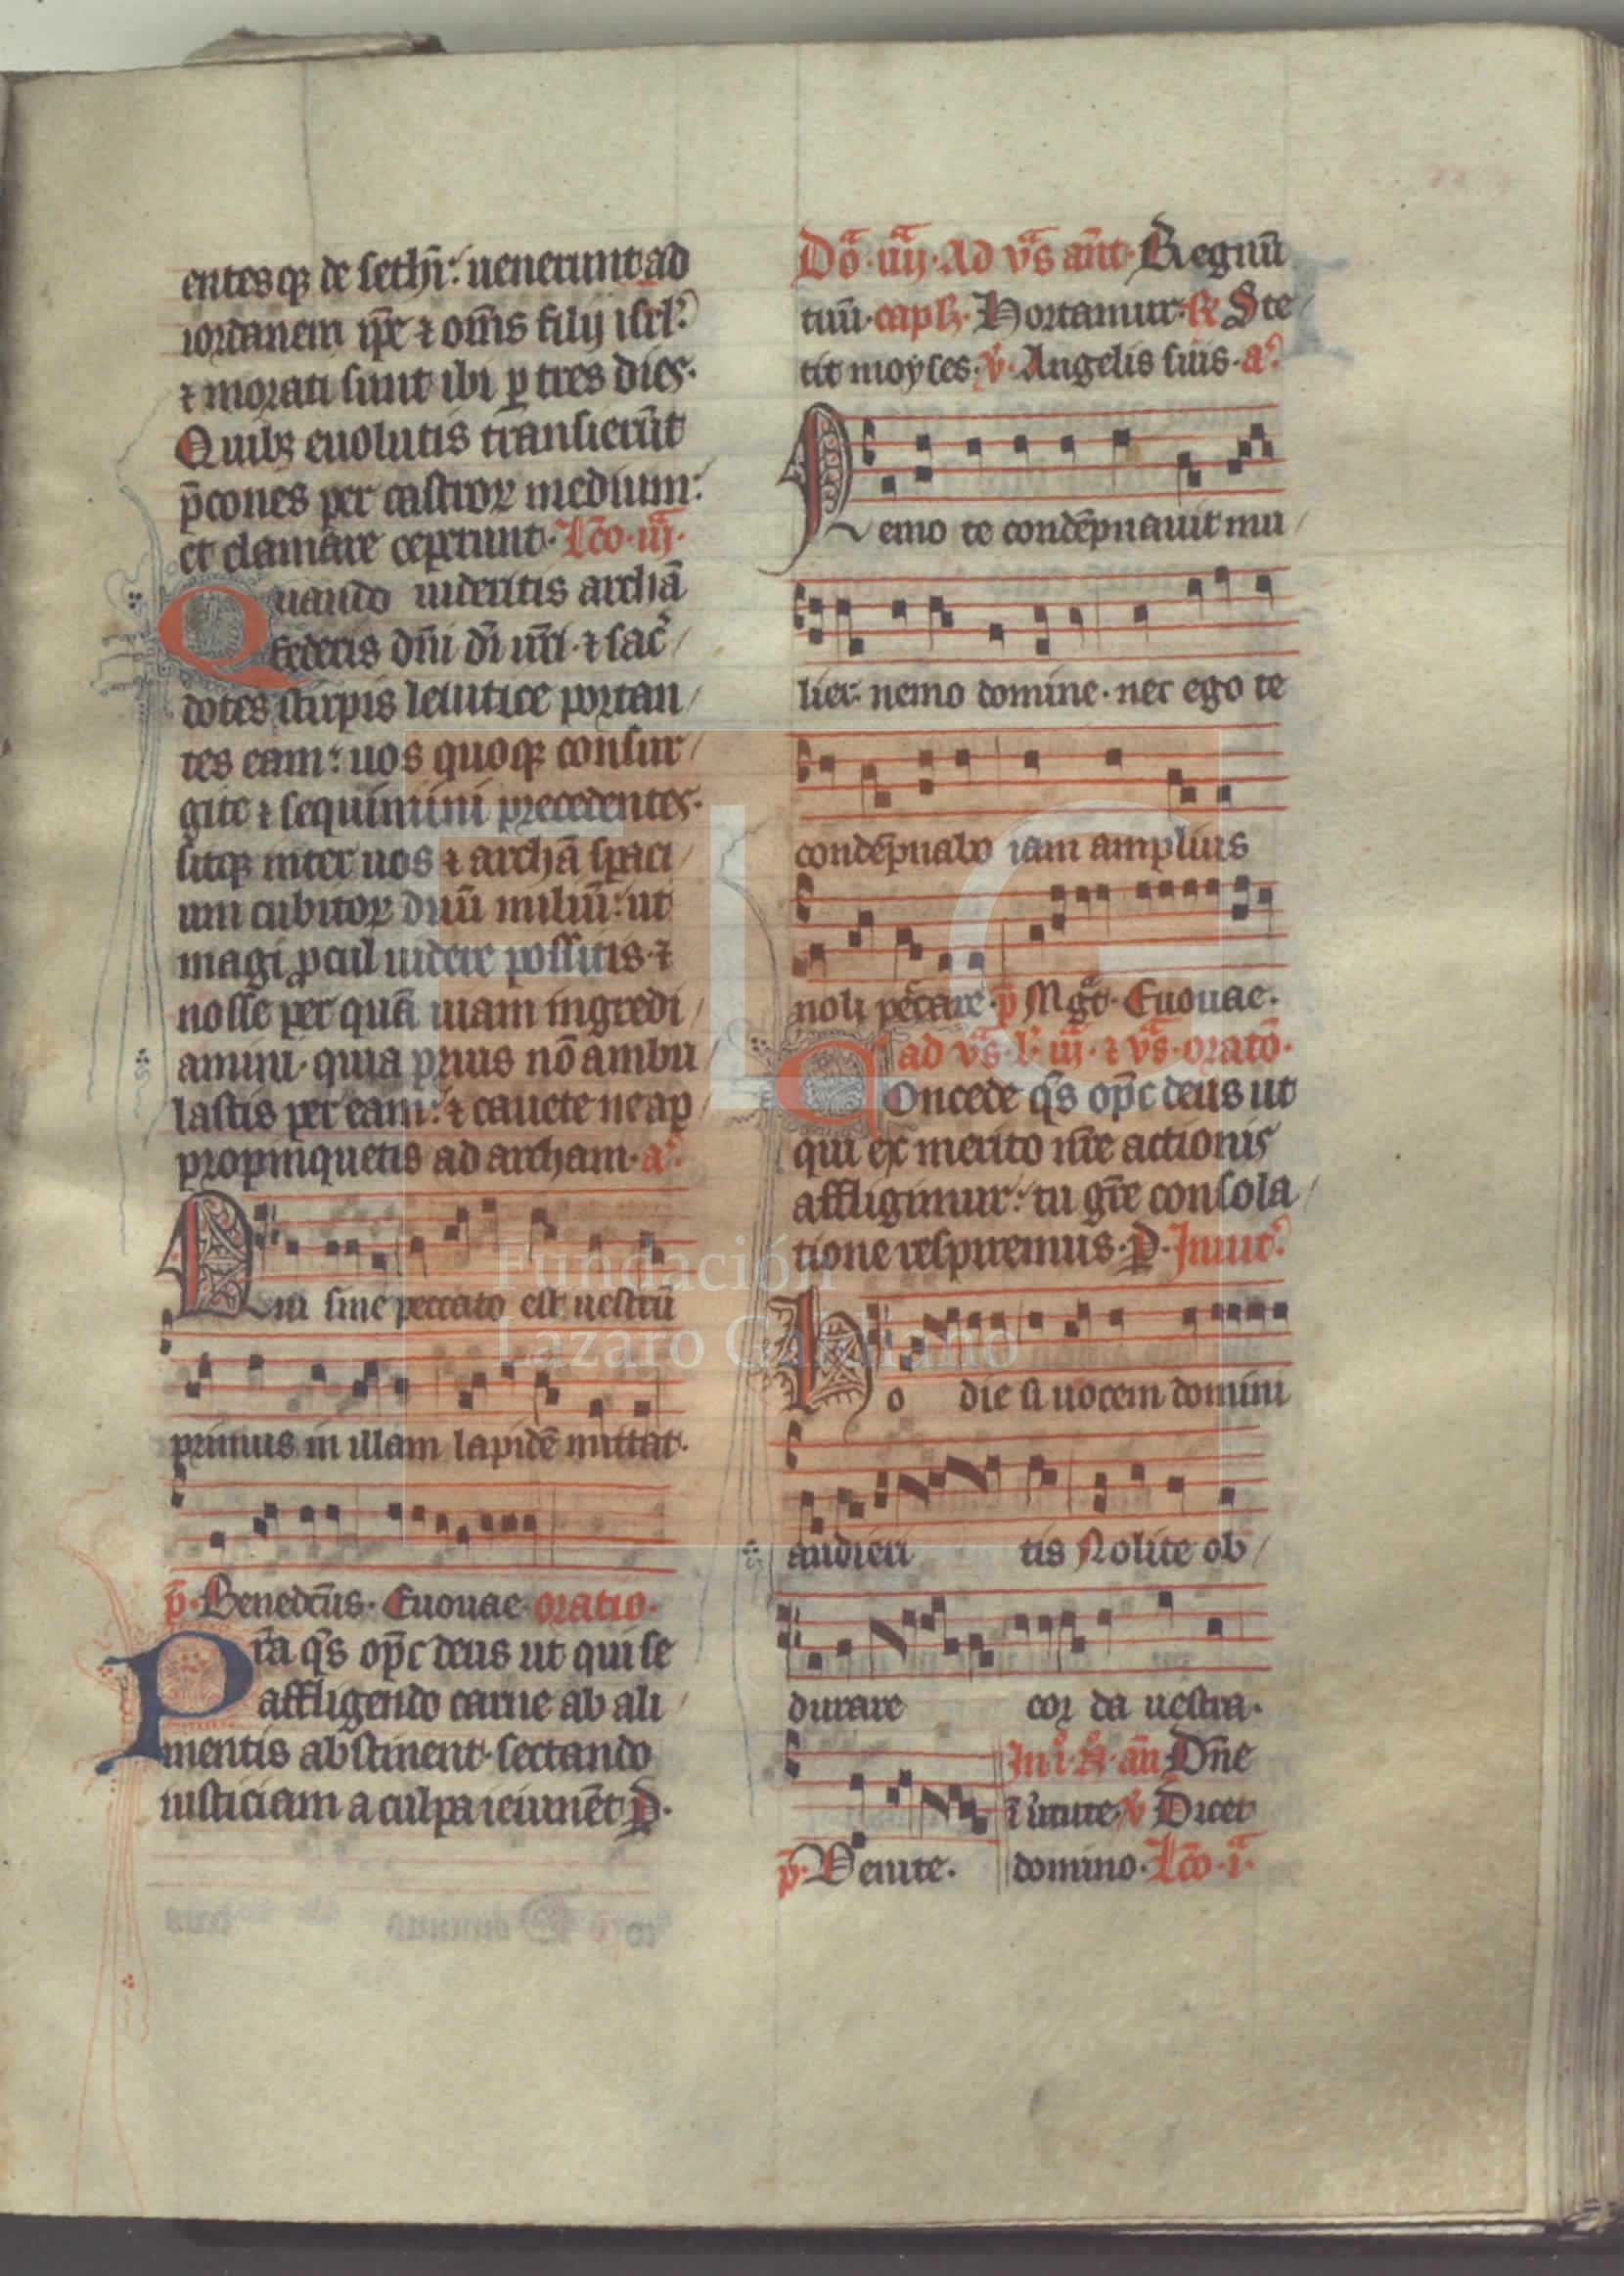 entesq; de sethī: uenerunt ad
iordanem ip̄e ⁊ om̄s filij isrl̓:
⁊ morati sunt ibi ꝑ tres dies.
Quib; euolutis transierūt
p̄cones per castroꝝ medium:
et clamare ceperunt. Lc̄o. iij.
Quando uideritis archā
federis dn̄i dī ur̄i. ⁊ sac̓
dotes stirpis leuitice portan
tes eam: uos quoq; consur
gite ⁊ sequimini precedentes.
sitq; inter uos ⁊ archā spaci
um cubitoꝝ duū miliū: ut
magi ꝓcul uidere possitis. ⁊
nosse per quā uiam ingredi
amini. quia prius nō ambu
lastis per eam: ⁊ cauete ne ap
propinquetis ad archam. a̓.
Qui sine peccato est uestrū
primus in illam lapidē mittat.
p̄. Benedc̄us. Euouae oratio.
Pr̄a q̄s op̄c deus ut qui se
affligendo carne ab ali
mentis abstinent. sectando
iusticiam a culpa ieiunēt. P̄.
Dō. iiij. Ad v̄s ānt. Regnū
tuū. capl̄. Hortamur. R̄ Ste
tit moyses. v̓. Angelis suis. a̓.
Nemo te condēpnauit mu
lier. nemo domine. nec ego te
condēpnabo iam amplius
noli peccare. p̄ Mgāt. Euouae.
ad v̄s. l̓. iij. ⁊ v̄s. oratō.
Concede q̄s op̄c deus ut
qui ex merito nr̄e actionis
affligimur: tu gr̄e consola
tione respiremus. P̄. Inuit̓.
Hodie si uocem domini
audieri tis Nolite ob
durare cor da uestra.
In i. N̄. ān Dn̄e
ī uirtute. v̓ Dicet
p̄. Venite. domino. Lc̄o. i.
Fundación
Lázaro Galdiano
FLG